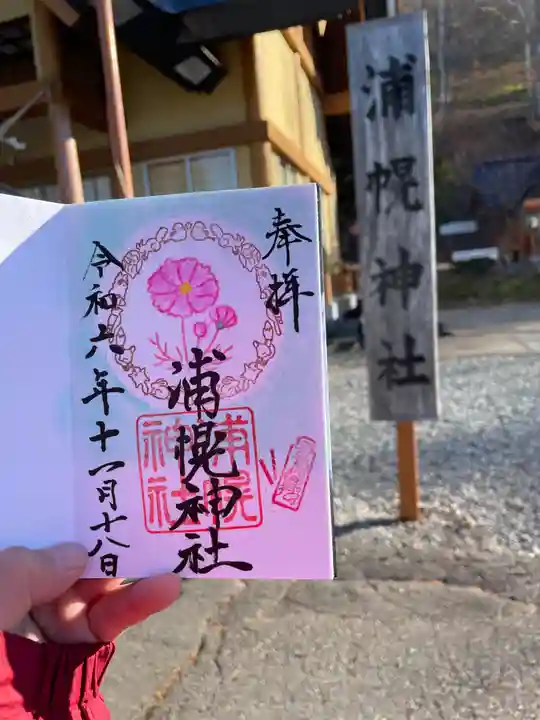 奉拝
浦幌神社
令和六年十一月十八日
浦幌
神社
浦幌神社